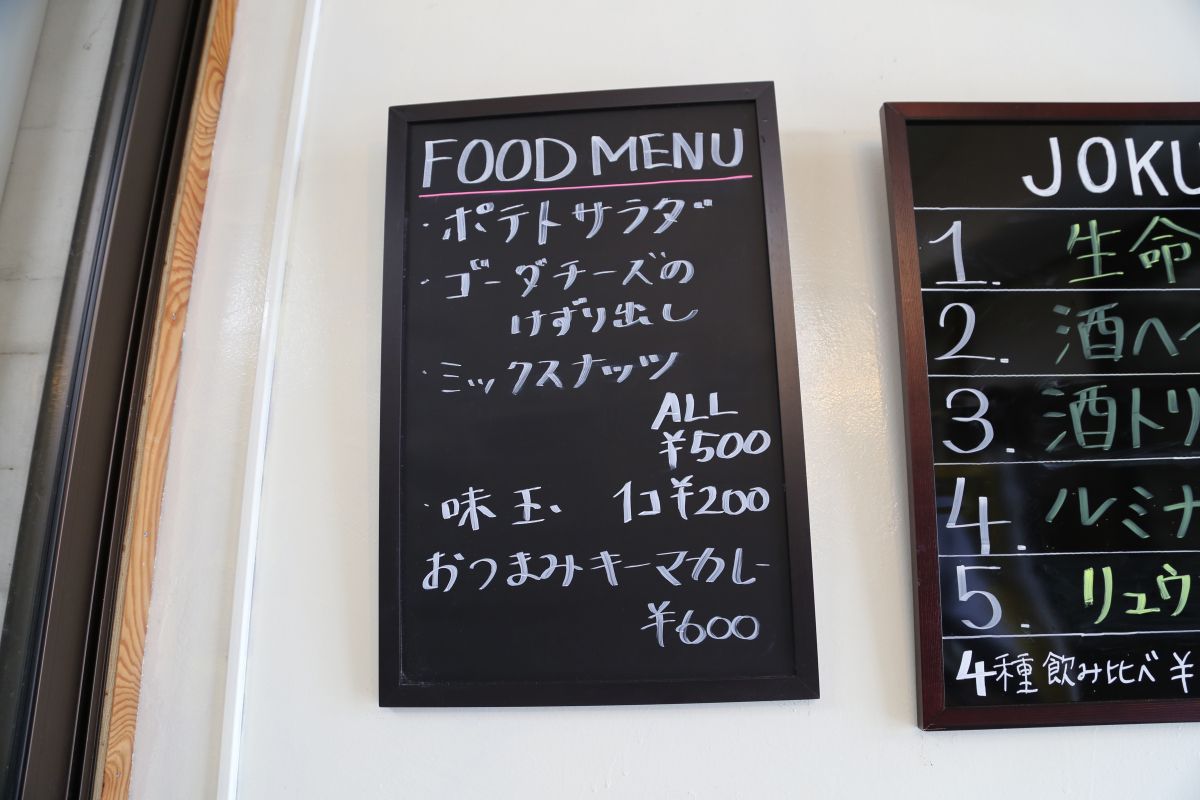 FOOD MENU
・ポテトサラダ
・ゴーダチーズの
けずり出し
・ミックスナッツ
ALL
¥500
・味玉、 1コ ¥200
おつまみキーマカレー
¥600
JOKU
1. 生命
2. 酒ヘ
3. 酒トリ
4. ルミナ
5. リュウ
4種飲み比べ ¥